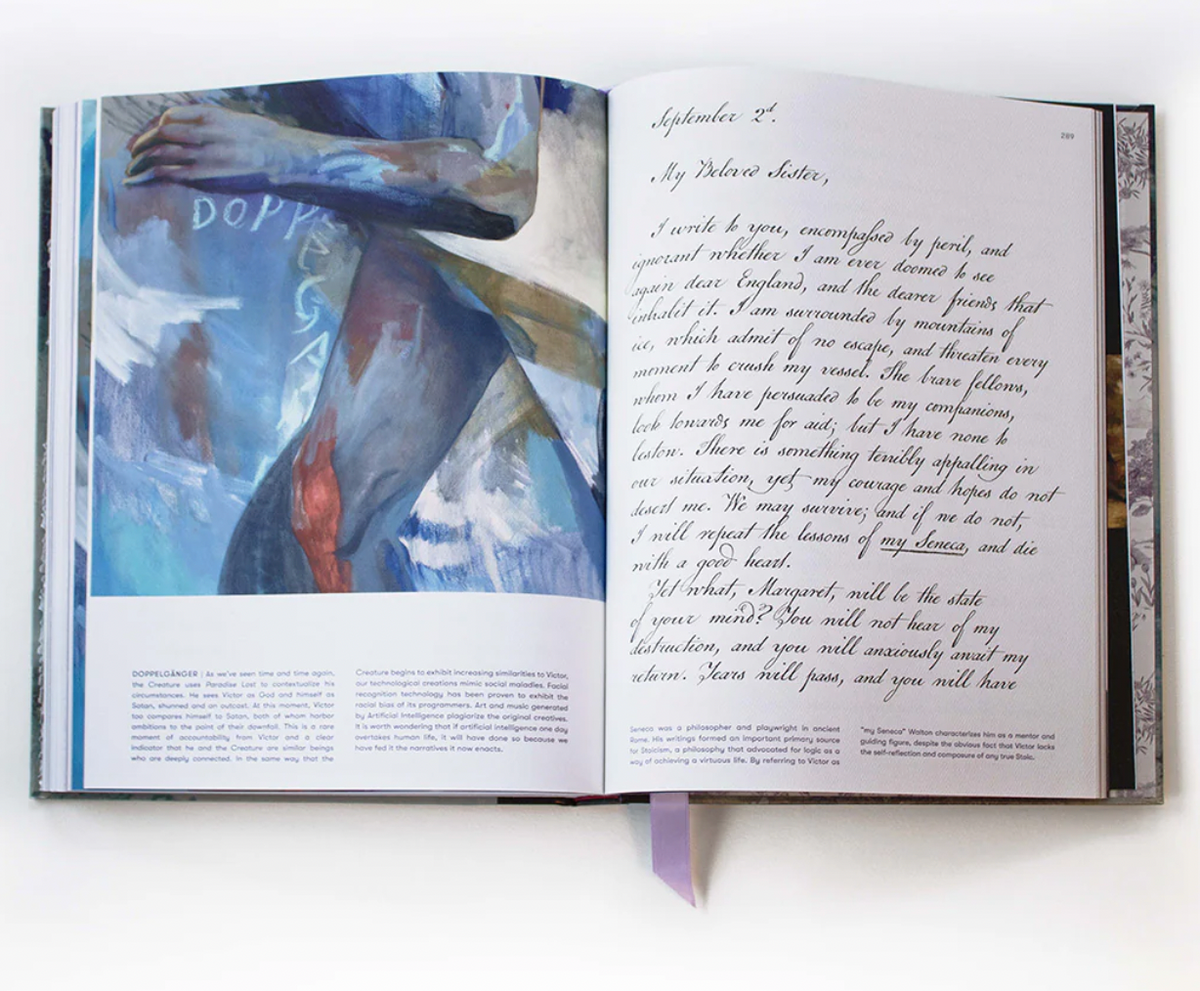 DOPPELGÄ
DOPPELGÄNGER | As we've seen time and time again,
the Creature uses Paradise Lost to contextualize his
circumstances. He sees Victor as God and himself as
Satan, shunned and an outcast. At this moment, Victor
too compares himself to Satan, both of whom harbor
ambitions to the point of their downfall. This is a rare
moment of accountability from Victor and a clear
indicator that he and the Creature are similar beings
who are deeply connected. In the same way that the
Creature begins to exhibit increasing similarities to Victor,
our technological creations mimic social maladies. Facial
recognition technology has been proven to exhibit the
racial bias of its programmers. Art and music generated
by Artificial Intelligence plagiarize the original creatives.
It is worth wondering that if artificial intelligence one day
overtakes human life, it will have done so because we
have fed it the narratives it now enacts.
289
September 2d.
My Beloved Sister,
I write to you, encompaſsed by peril, and
ignorant whether I am ever doomed to see
again dear England, and the dearer friends that
inhabit it. I am surrounded by mountains of
ice, which admit of no escape, and threaten every
moment to crush my vessel. The brave fellows,
whom I have persuaded to be my companions,
look towards me for aid; but I have none to
bestow. There is something terribly appalling in
our situation, yet my courage and hopes do not
desert me. We may survive; and if we do not,
I will repeat the lessons of my Seneca, and die
with a good heart.
Yet what, Margaret, will be the state
of your mind? You will not hear of my
destruction, and you will anxiously await my
return. Years will pass, and you will have
Seneca was a philosopher and playwright in ancient
Rome. His writings formed an important primary source
for Stoicism, a philosophy that advocated for logic as a
way of achieving a virtuous life. By referring to Victor as
"my Seneca" Walton characterizes him as a mentor and
guiding figure, despite the obvious fact that Victor lacks
the self-reflection and composure of any true Stoic.